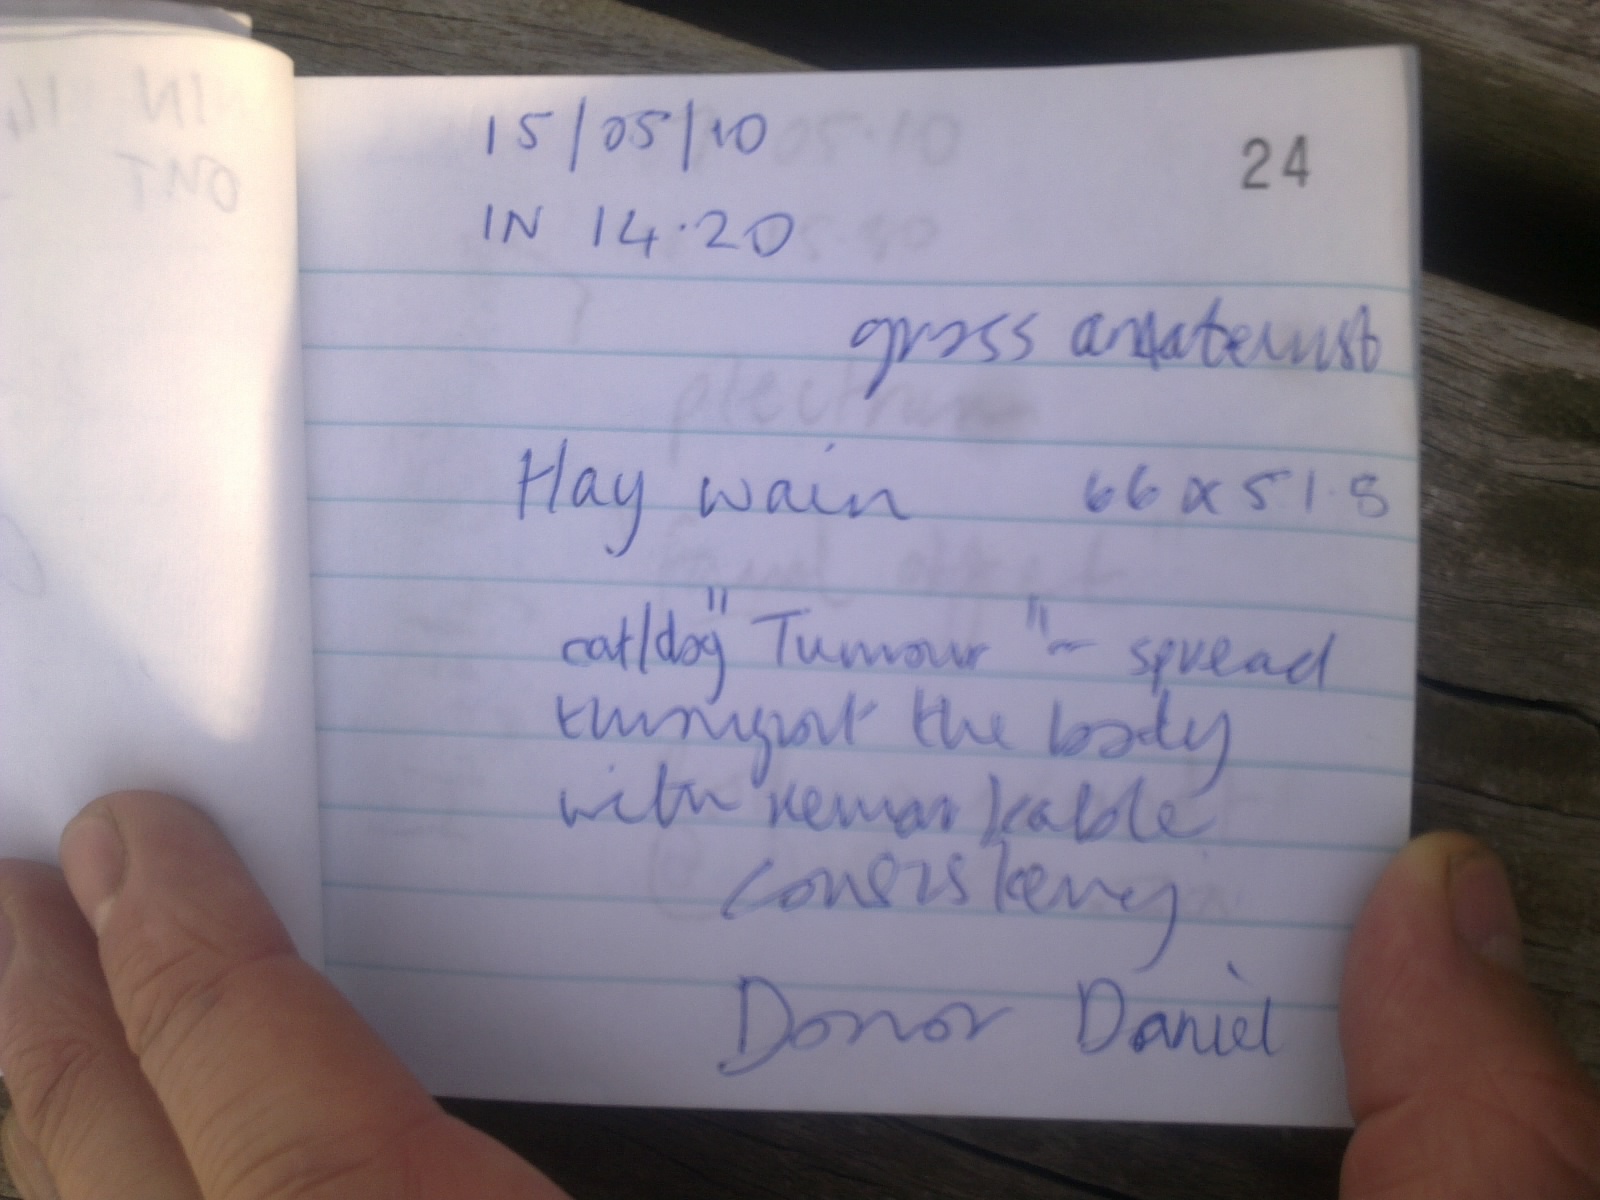 15/05/10
24
IN 14.20
gross amateurist
Hay wain 66 x 51.8
cat/dog "Tumour" - spread
throughout the body
with remarkable
consistency
Donor Daniel
IN 14
OUT